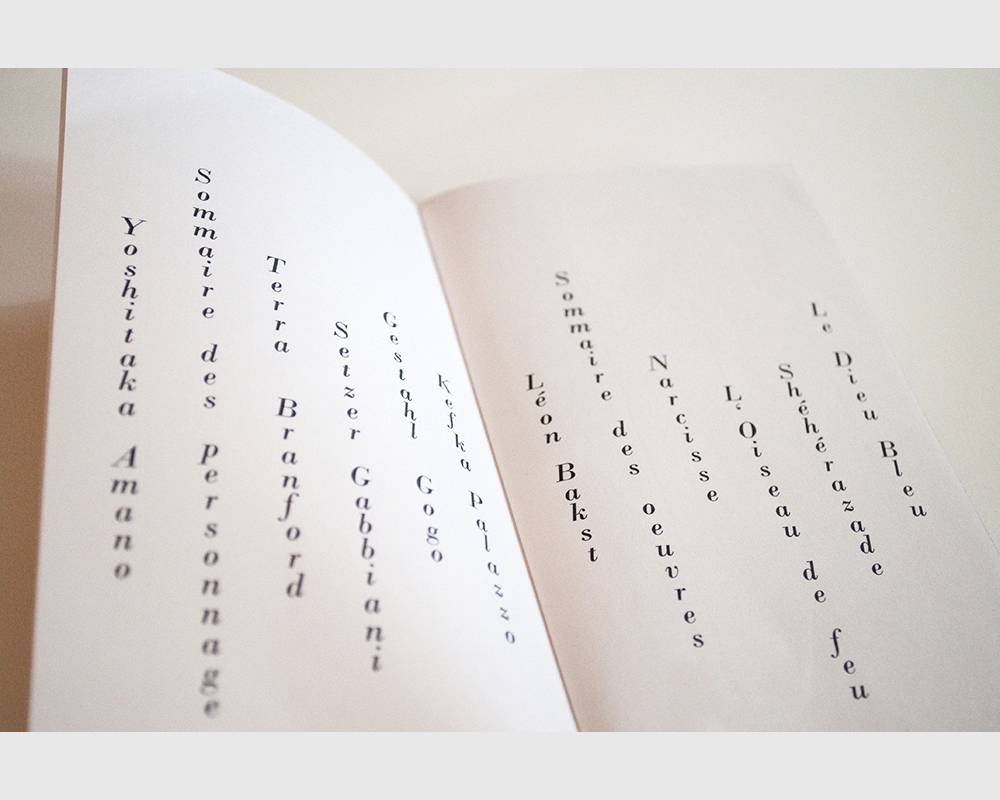 Yoshitaka Amano
Sommaire des personnage
Terra Branford
Setzer Gabbiani
Gestahl Gogo
Kefka Palazzo
Léon Bakst
Sommaire des oeuvres
Narcisse
L'Oiseau de feu
Shéhérazade
Le Dieu Bleu